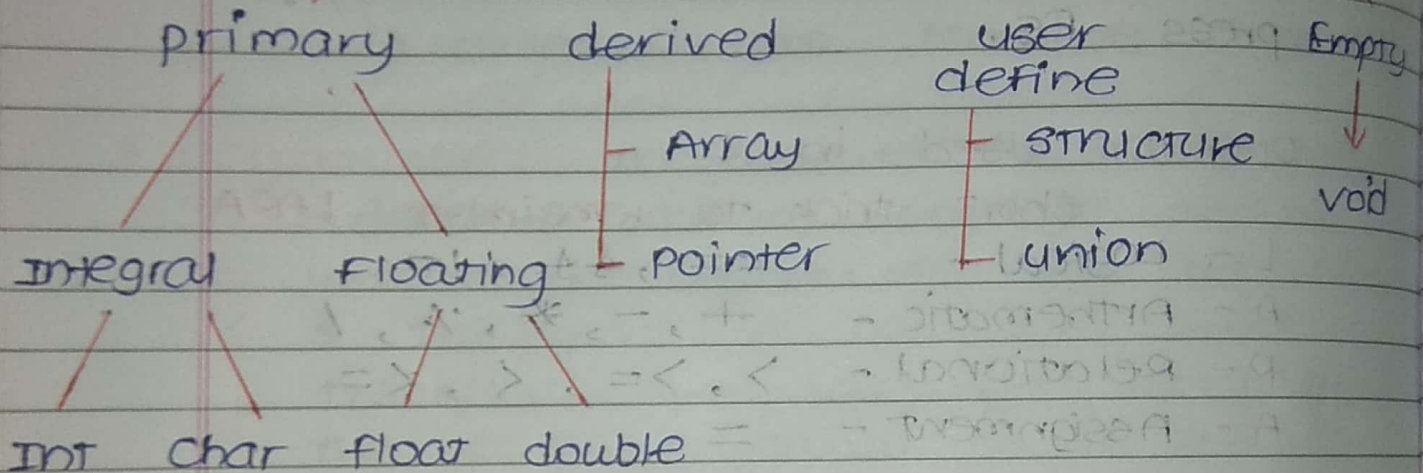 primary derived user Empty
define
Array structure
void
Integral Floating pointer union
Int char float double